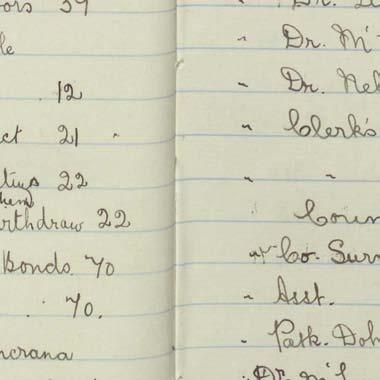 ors 39
le
12
ct 21
22
withdraw 22
Bonds 70
70.
ncrana
" Dr. M'
" Dr. Nel
" Clerk's
" "
Coun
" Co. Surv
" Asst.
" Patk. Doh